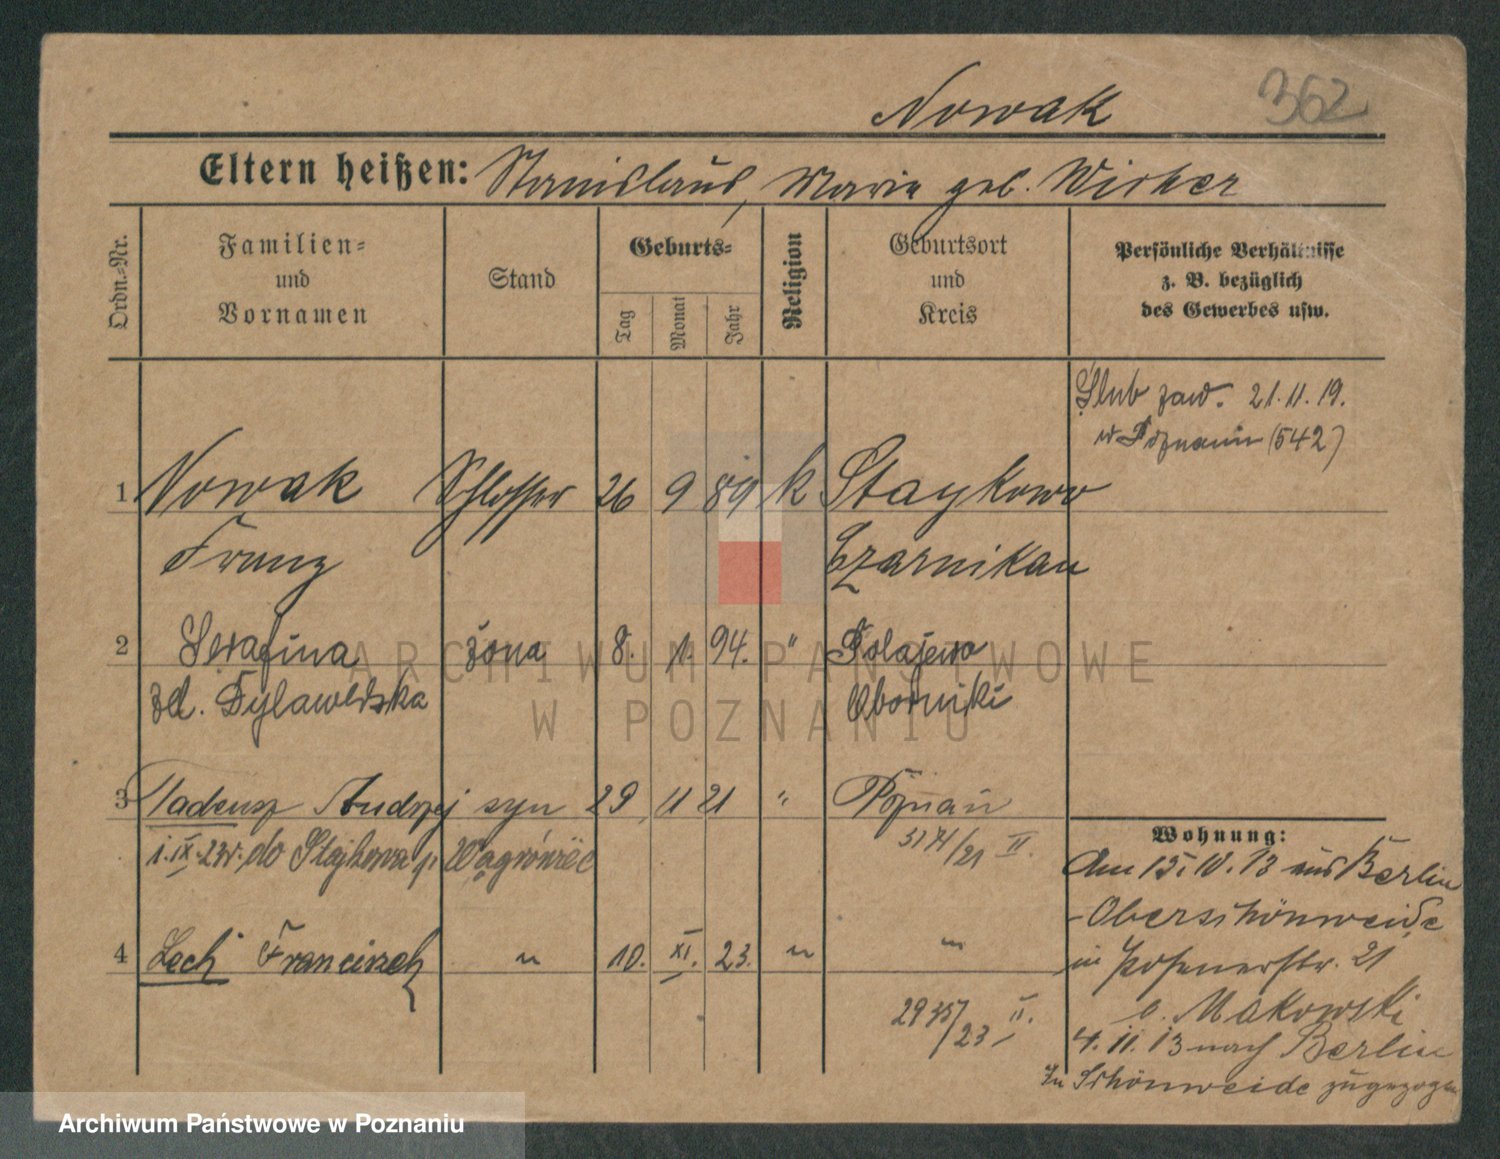 Nowak
362
Eltern heißen: Stanislaus, Marie geb. Wicher
Ordn.-Nr.
Familien- und Vornamen
Stand
Geburts-
Tag
Monat
Jahr
Religion
Geburtsort und Kreis
Persönliche Verhältnisse
z. B. bezüglich
des Gewerbes usw.
Ślub zaw. 21.11.19.
w Poznaniu (542)
1 Nowak Schlosser 26 9 89 k Staykowo
Franz Czarnikau
2 Serafina żona 8. 1. 94. " Połajewo
zd. Oborniki
3 Tadeusz Andrzej syn 29 11 21 " Poznań
5174/21 II
1.IX.23r. do Stajkowa p. Wągrówiec
4 Lech Franciszek " 10. XI. 23. " "
2935/23 II.
Wohnung:
Am 15.10.13 aus Berlin
-Oberschönweide
in Posenerstr. 21
b. Makowski
4.11.13 nach Berlin
Schönweide zugezogen
ARCHIWUM PAŃSTWOWE
W POZNANIU
Archiwum Państwowe w Poznaniu